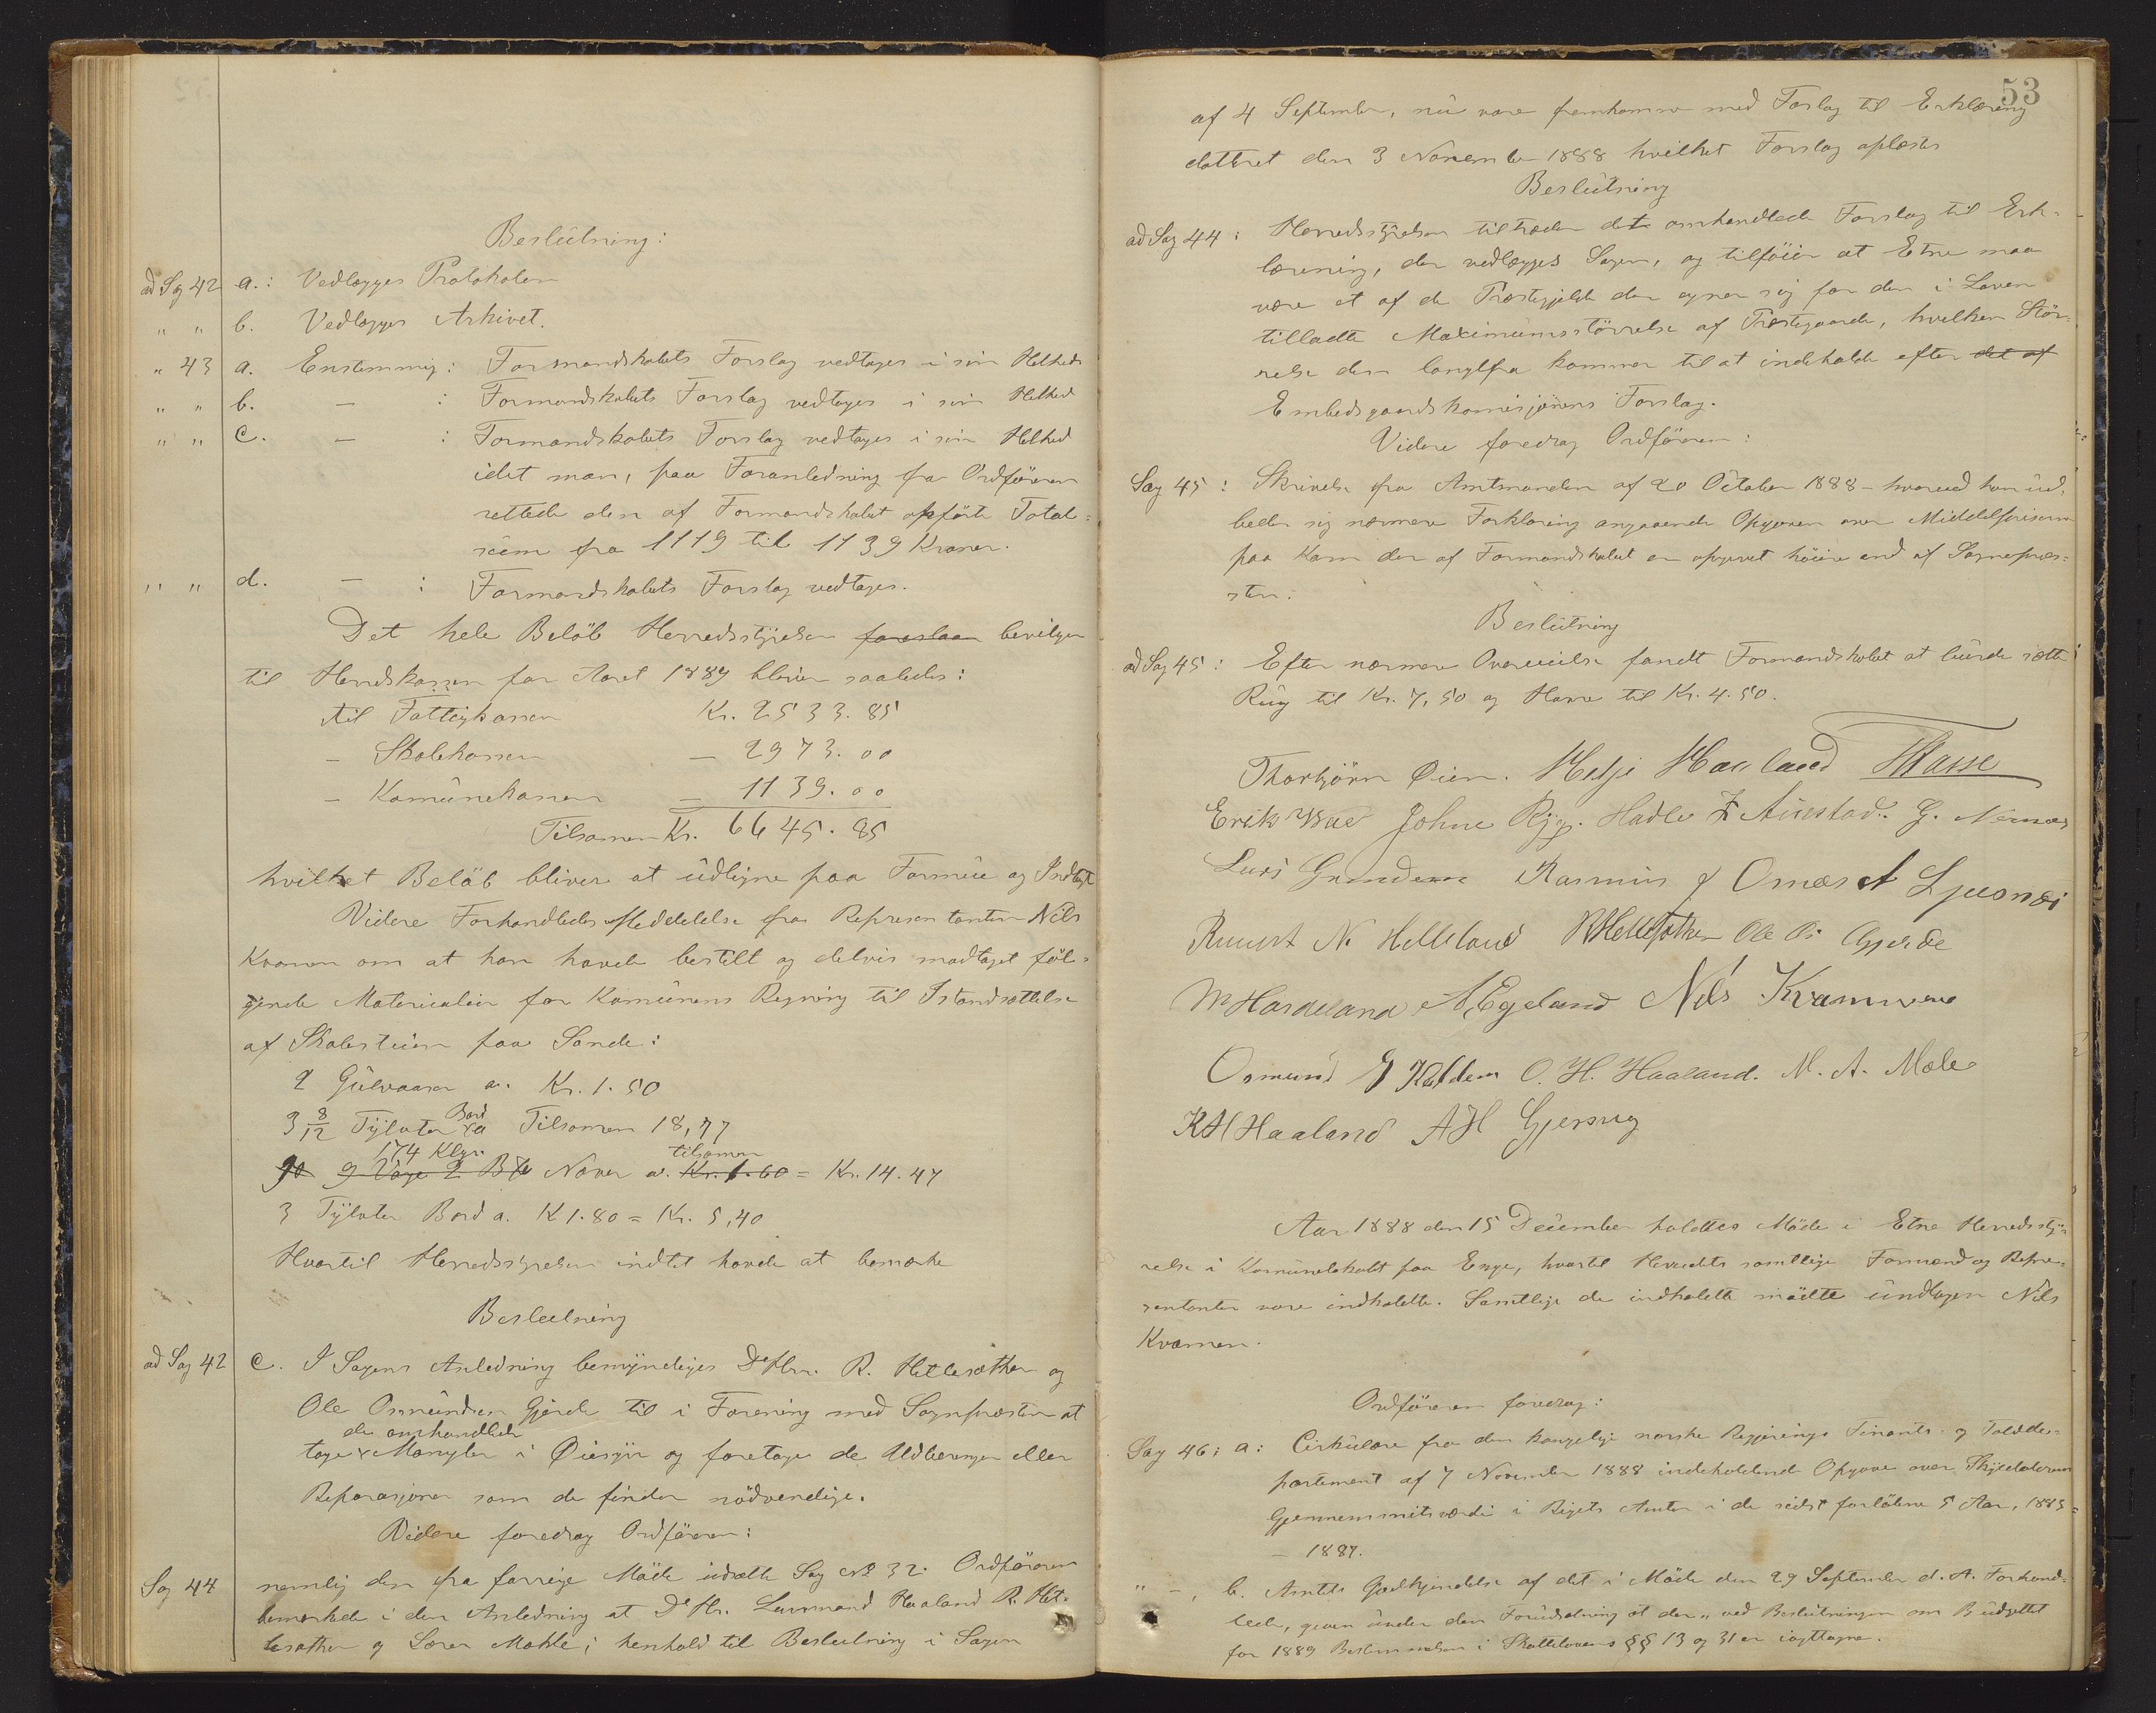 Beslutning:
ad Sag 42 a.: Vedlægges Protokolen
" " b. Vedlægges Arkivet.
" 43 a. Enstemmig: Formandskabets Forslag vedtages i sin Helhed
" " b. — : Formandskabets Forslag vedtages i sin Helhed
" " c. — : Formandskabets Forslag vedtages i sin Helhed
idet man, paa Foranledning fra Ordföreren
rettede den af Formandskabet opförte Total=
sum fra 1119 til 1139 Kroner.
" " d. — : Formandskabets Forslag vedtages.
Det hele Belöb Herredsstyrelsen foreslaar bevilger
til Herredskassen for Aaret 1889 bliver saaledes:
til Fattigkassen Kr. 2533.85
- Skolekassen — 2973.00
- Komünekassen — 1139.00
Tilsamen Kr. 6645.85
hvilket Belöb bliver at üdligne paa Formüe og Indtægt
Videre Forhandledes Meddelelse fra Representanten Nils
Kvamen om at han havde bestilt og delvis modtaget föl=
gende Materialier for Komünens Regning til Istandsættelse
af Skolestuen paa Sande:
2 Gülvaaser a. Kr. 1.50
3 8/12 Tylvter Bord a Tilsamen 18,77
174 Klgr. tilsamen
90 9 Våge 2 B Næver a. Kr. 1.60 = Kr. 14.47
3 Tylvter Bord a. K 1.80 = Kr. 5,40
Hvortil Herredsstyrelsen indtet havde at bemærke
Beslutning
ad Sag 42 c. I Sagens Anledning bemyndiges D'Hrr. R. Hellesæther og
Ole Osmündsen Gjerde til i Forening med Sognepresten at
de omhandlede
tage Mangler i Öiesyn og foretage de Udbedringer eller
Reparasjoner som de finder nödvendige.
Videre foredrog Ordföreren:
Sag 44 nemlig den fra forrige Möde udsatte Sag № 32. Ordföreren
bemærkede i den Anledning at D'Hr. Lensmand Haaland R. Hel=
lesæther og Lærer Mæhle i henhold til Beslutning i Sagen
53
af 4 September, nü vare fremkomne med Forslag til Erklæring
datteret den 3 November 1888 hvilket Forslag oplæstes
Beslütning
ad Sag 44: Herredsstyrelsen tiltræder det omhandlede Forslag til Erk=
læring, der vedlægges Sagen, og tilföier at Etne maa
være et af de Præstegjelde der egner sig for den i Loven
tilladte Maximumsstörrelse af Præstegaarde, hvilken Stör=
relse den kommer til at indeholde efter det af
Embedsgaardskomisjönens Forslag.
Videre foredrog Ordföreren:
Sag 45: Skrivelse fra Amtmanden af 20 October 1888 - hvorved han üd=
beder sig nærmere Forklaring angaaende Opgaven over Middelpriserne
paa Korn der af Formandskabet er opgivet höiere end af Sognepræs=
ten.
Beslütning
ad Sag 45: Efter nærmere Overveielse fandt Formandskabet at burde sætte
Rüg til Kr. 7,50 og Havre til Kr. 4.50.
Thorbjörn Øien. Helje Haaland
Erik Johne Rygg. Hadle Austad. G.
Lars Grindem Rasmus J Omes A Ljosnæi
Knut N. Helleland RHellesæther Ole O. Gjerde
A Egeland Nils Kvamen
Osmund J Kaldem O. H. Haaland. M. A. Mæle
KH Haaland AH Gjersvig
Aar 1888 den 15 December holdtes Möde i Etne Herredssty=
relse i Komünelokalet paa Enge, hvortil Herredets samtlige Formænd og Repre=
sentanter vare indkaldte. Samtlige de indkaldte mödte ündtagen Nils
Kvamen.
Ordföreren foredrog:
Sag 46: a: Cirkülære fra den kongelige norske Regjerings Finants- og Tolddе=
partement af 7 November 1888 indeholdende Opgave over Skyldalerens
Gjennemsnitsværdi i Rigets Amter i de sidst forlöbne 5 Aar, 1883=
— 1887.
" - , b. Amtets Godkjendelse af det i Möde den 29 September d. A. Forhand=
lede, given ünder den Forüdsætning at der ved Beslütningen om Büdgettet
for 1889 Bestemmelsen i Skattelovens §§ 13 og 31 er iagttagne.